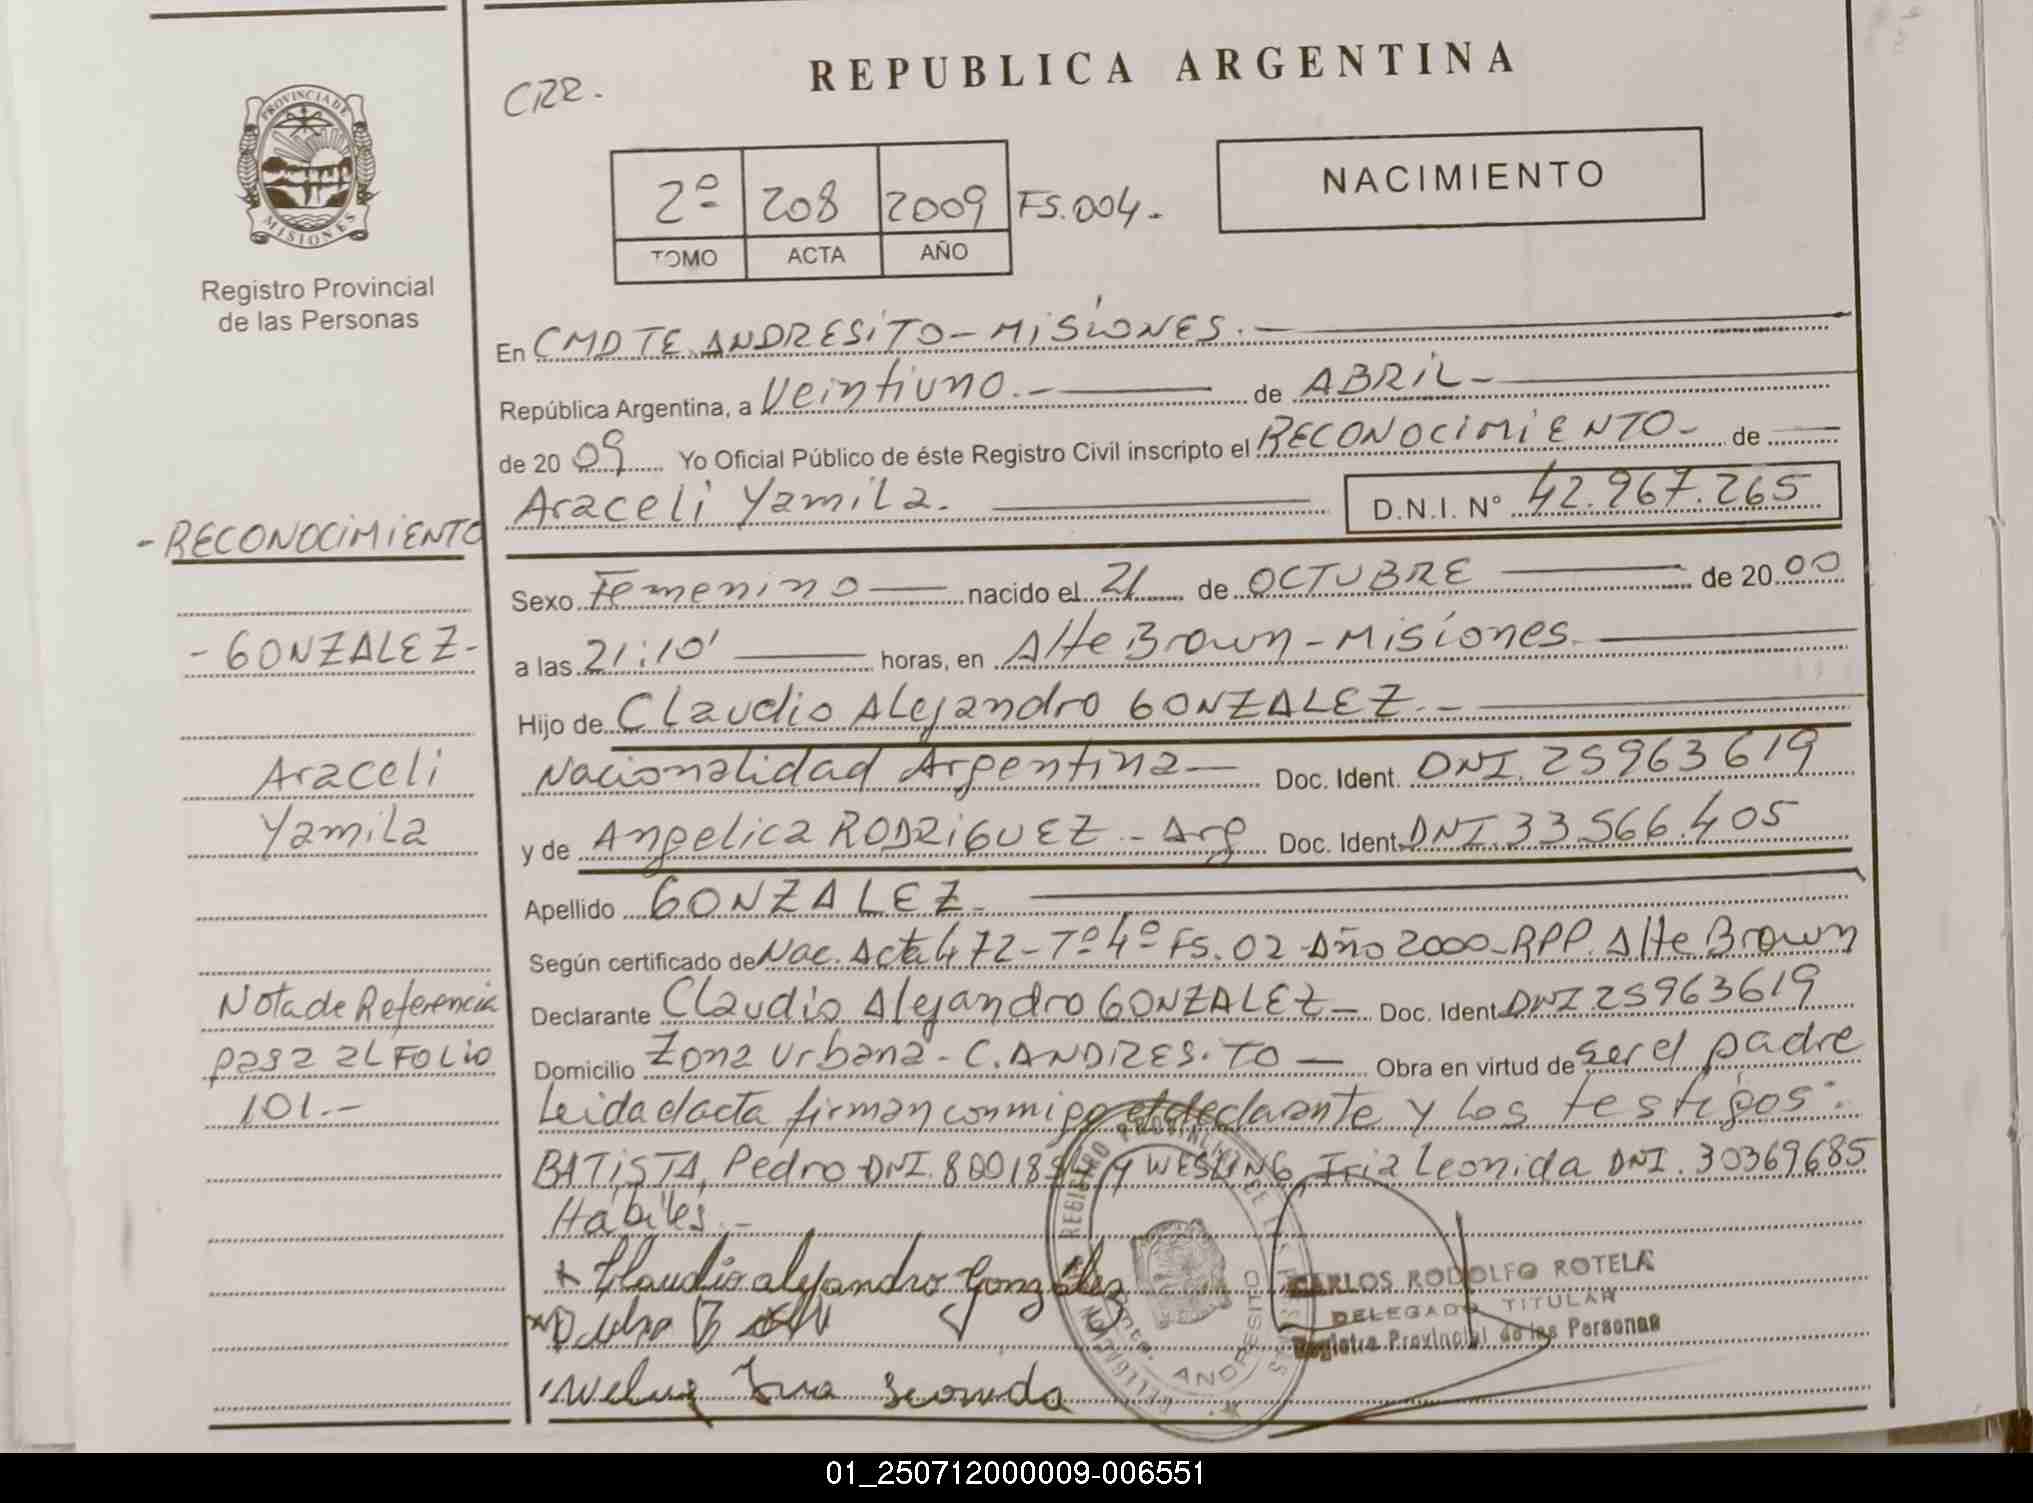 REPUBLICA ARGENTINA
CRR.
PROVINCIA DE
MISIONES
Registro Provincial
de las Personas
2º 208 2009 FS.004.-
TOMO ACTA AÑO
NACIMIENTO
En CMDTE. ANDRESITO - MISIONES.-
República Argentina, a Veintiuno.- de ABRIL-
de 2009 Yo Oficial Público de éste Registro Civil inscripto el RECONOCIMIENTO- de
Araceli Yamila. D.N.I. Nº 42.967.265
Sexo Femenino nacido el 21 de OCTUBRE de 2000
a las 21:10' horas, en Alte Brown - Misiones.
Hijo de Claudio Alejandro GONZALEZ.-
Nacionalidad Argentina- Doc. Ident. DNI. 25963619
y de Angelica RODRIGUEZ - Arg Doc. Ident. DNI. 33.566.405
Apellido GONZALEZ-
Según certificado de Nac. Acta 472 - Tº 4º FS. 02 - Año 2000 - RPP. Alte Brown
Declarante Claudio Alejandro GONZALEZ - Doc. Ident. DNI 25963619
Domicilio Zona Urbana - C. ANDRESITO - Obra en virtud de ser el padre
Leida el acta firman conmigo el declarante y los testigos:
BATISTA, Pedro DNI. y WESLING, Leonida DNI. 30369685
Habiles.-
Claudio alejandro Gonzalez
CARLOS RODOLFO ROTELA
DELEGADO TITULAR
Registro Provincial de las Personas
REGISTRO PROVINCIAL DE
ANDRESITO
- RECONOCIMIENTO
- GONZALEZ -
Araceli
Yamila
Nota de Referencia
pasa al FOLIO
101.-
01_250712000009-006551